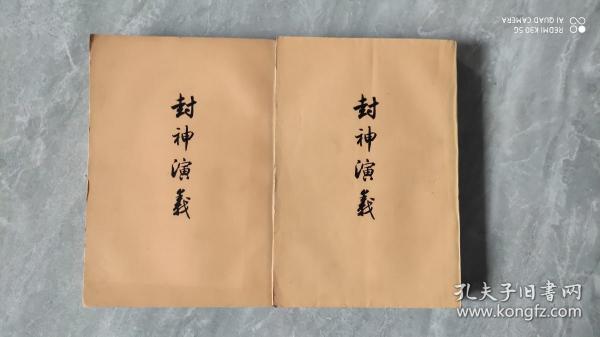 封神演義
封神演義
REDMI K30 5G
AI QUAD CAMERA
孔夫子旧書网
www.kongfz.com